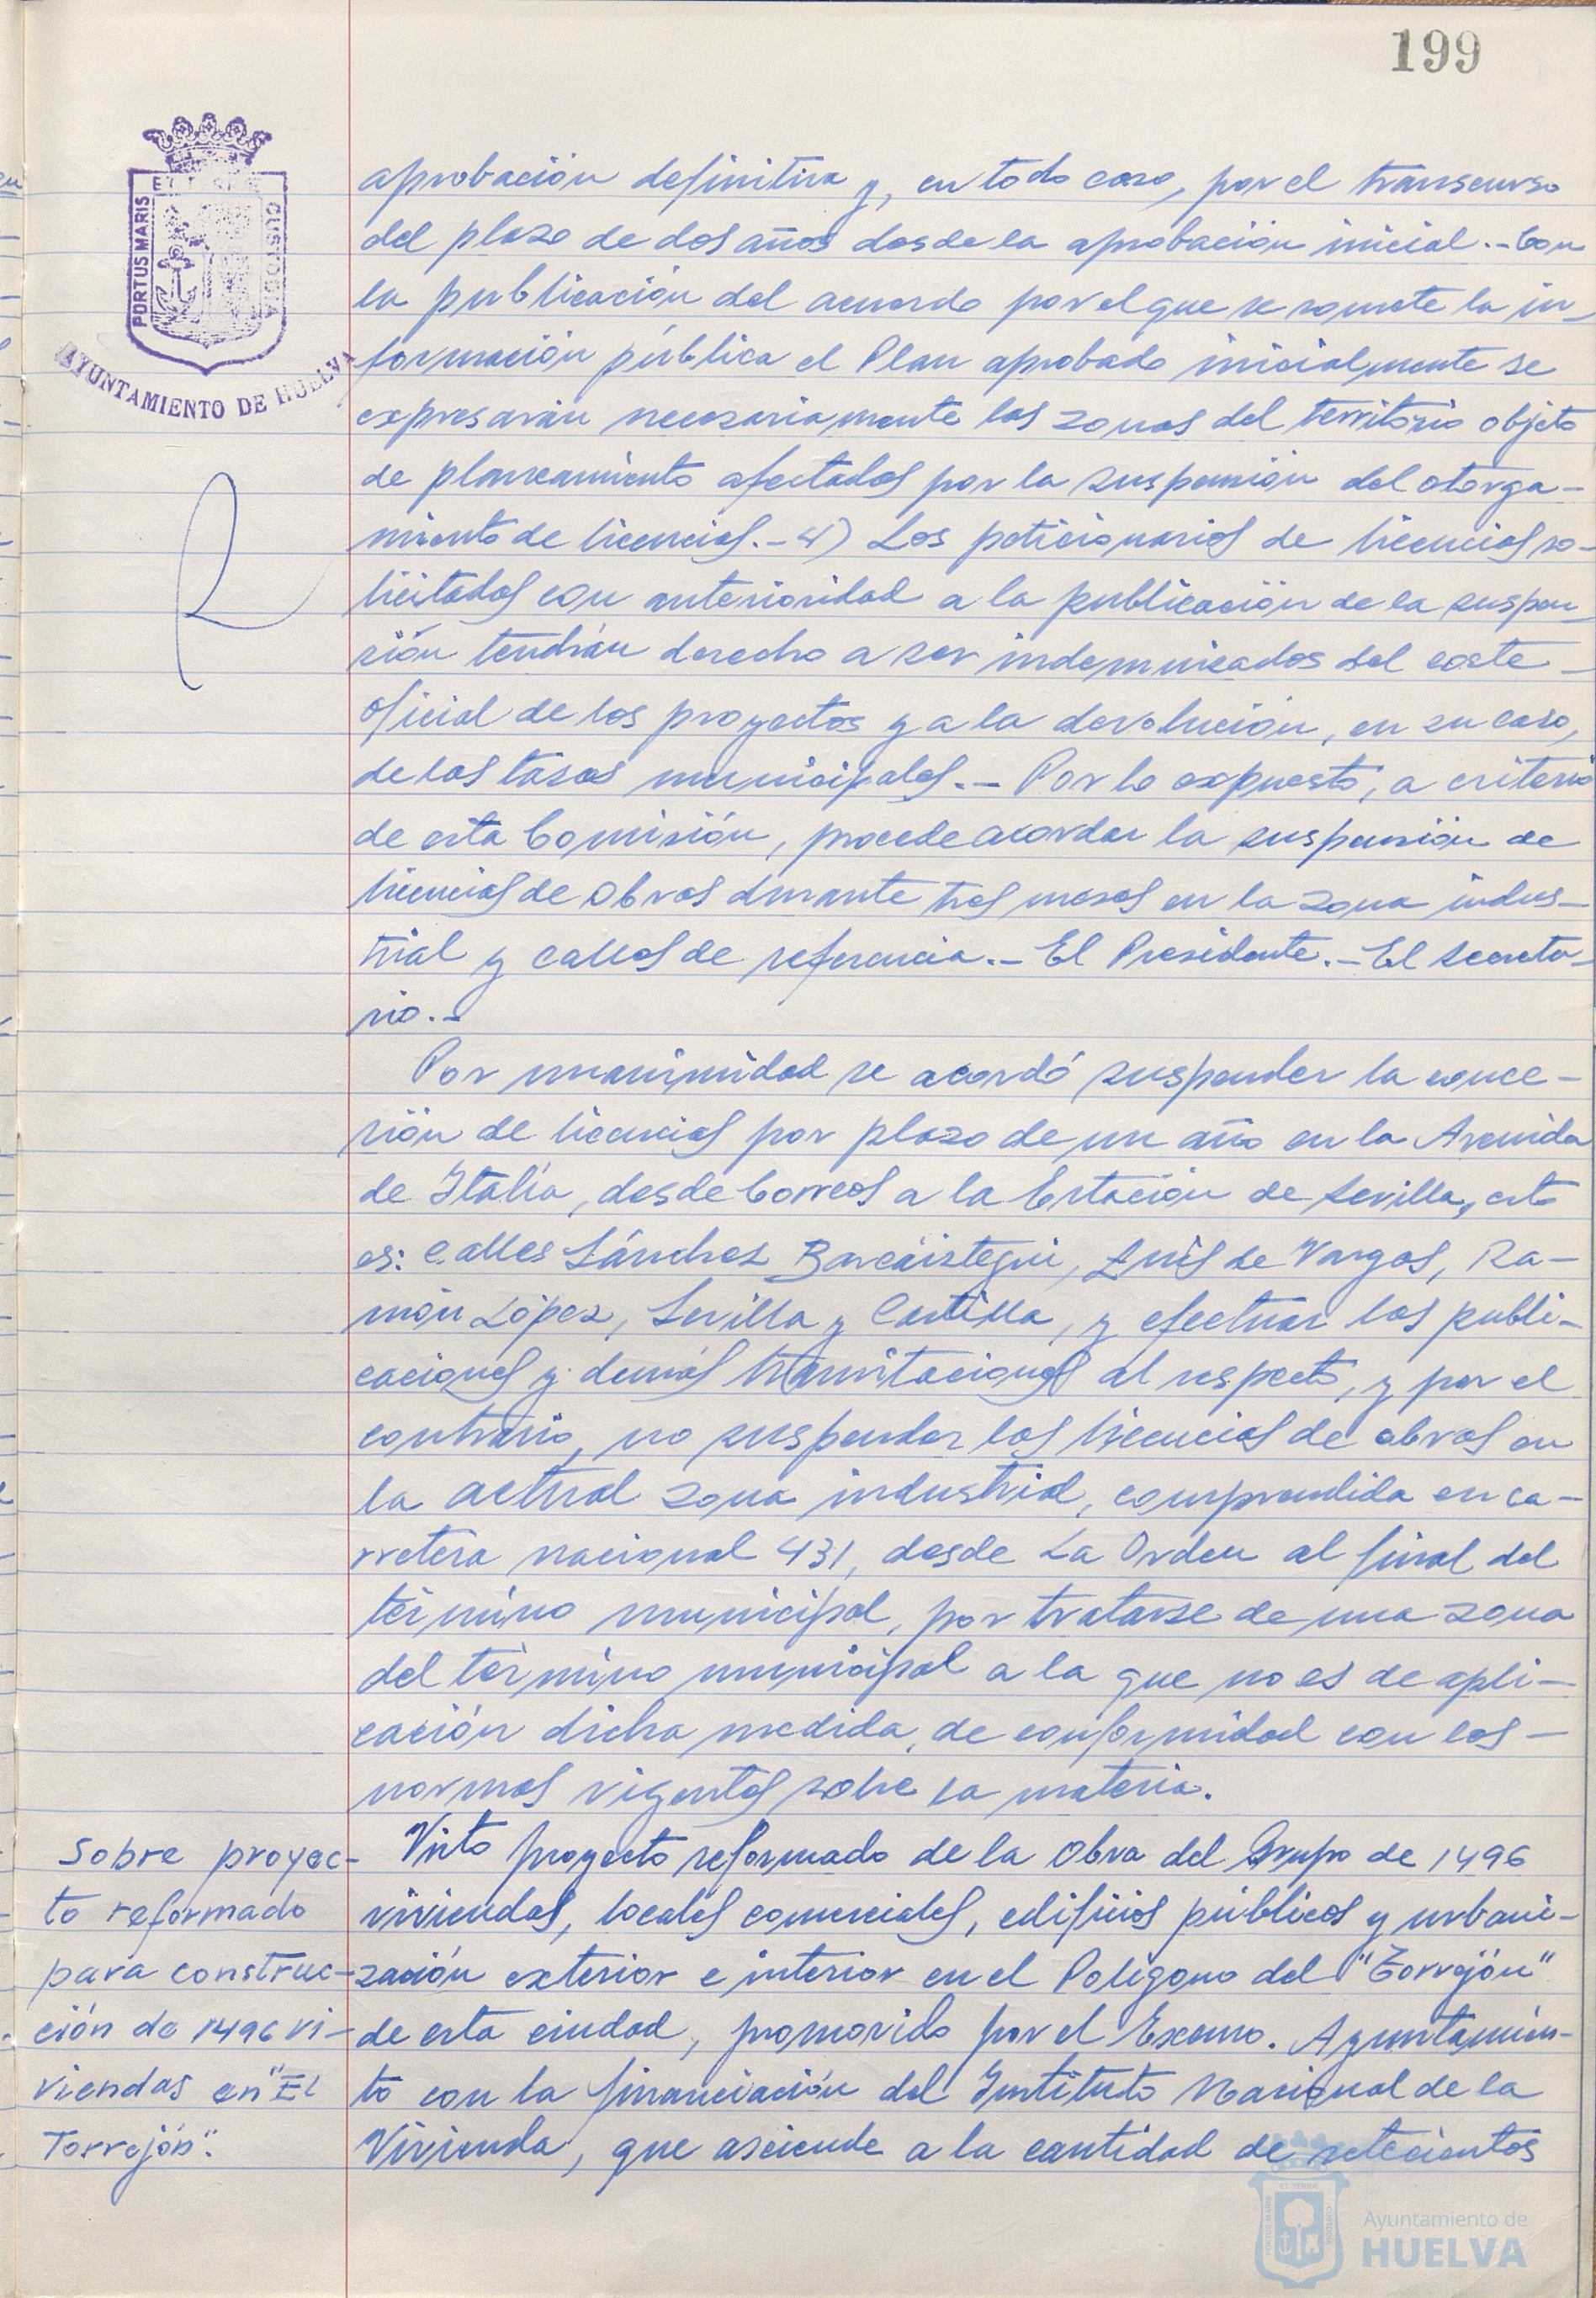 199
PORTUS MARIS ET TERRAE CUSTODIA
AYUNTAMIENTO DE HUELVA
aprobación definitiva y, en todo caso, por el transcurso
del plazo de dos años desde la aprobación inicial.- Con
la publicación del acuerdo por el que se somete la in-
formación pública el Plan aprobado inicialmente se
expresarán necesariamente las zonas del territorio objeto
de planeamiento afectadas por la suspensión del otorga-
miento de licencias.- 4) Los peticionarios de licencias so-
licitadas con anterioridad a la publicación de la suspen-
sión tendrán derecho a ser indemnizados del coste
oficial de los proyectos y a la devolución, en su caso,
de las tasas municipales.- Por lo expuesto, a criterio
de esta Comisión, procede acordar la suspensión de
licencias de obras durante tres meses en la zona indus-
trial y calles de referencia.- El Presidente.- El Secreta-
rio.-
Por unanimidad se acordó suspender la conce-
sión de licencias por plazo de un año en la Avenida
de Italia, desde Correos a la Estación de Sevilla, esto
es: calles Sánchez Barcáiztegui, Luis de Vargas, Ra-
món López, Sevilla y Castilla, y efectuar las publi-
caciones y demás tramitaciones al respecto, y por el
contrario, no suspender las licencias de obras en
la actual zona industrial, comprendida en ca-
rretera nacional 431, desde La Orden al final del
término municipal, por tratarse de una zona
del término municipal a la que no es de apli-
cación dicha medida, de conformidad con las
normas vigentes sobre la materia.
Sobre proyec-
to reformado
para construc-
ción de 1496 vi-
viendas en "El
Torrejón".
Visto proyecto reformado de la Obra del Grupo de 1496
viviendas, locales comerciales, edificios públicos y urbani-
zación exterior e interior en el Polígono del "Torrejón"
de esta ciudad, promovido por el Excmo. Ayuntamien-
to con la financiación del Instituto Nacional de la
Vivienda, que asciende a la cantidad de setecientos
Ayuntamiento de
HUELVA